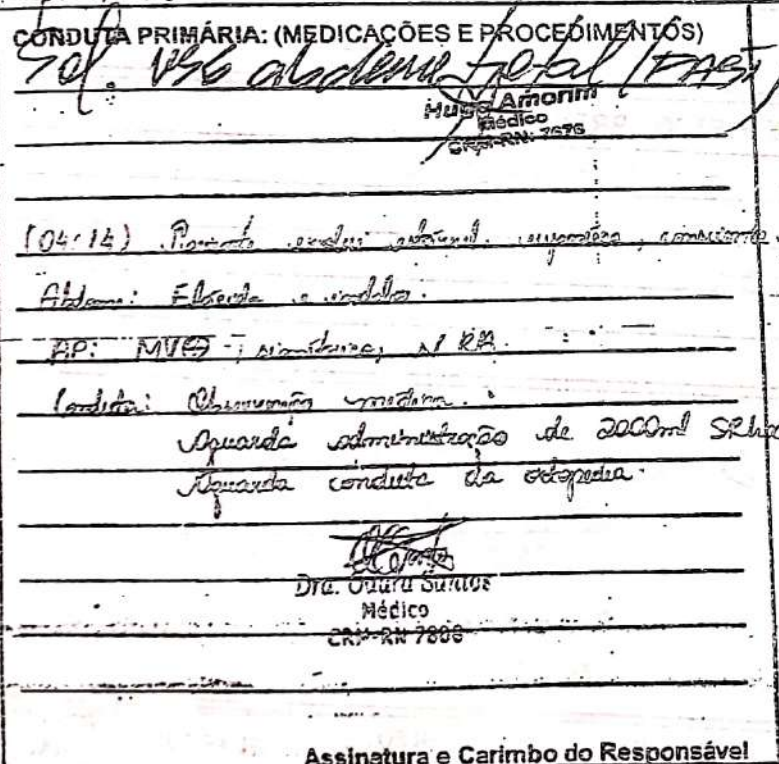 CONDUTA PRIMÁRIA: (MEDICAÇÕES E PROCEDIMENTOS)
Sol. USG abdome total (FAST)
Hugo Amorim
Médico
CRM-RN: 7676
(04:14) Paciente evolui estável, consciente.
Abdome: Flácido e indolor.
AP: MV⊕, simétrico, s/ RA.
Conduta: Observação médica.
Aguarda administração de 2000ml
Aguarda conduta da ortopedia.
Dra. Santos
Médico
CRM-RN
Assinatura e Carimbo do Responsável